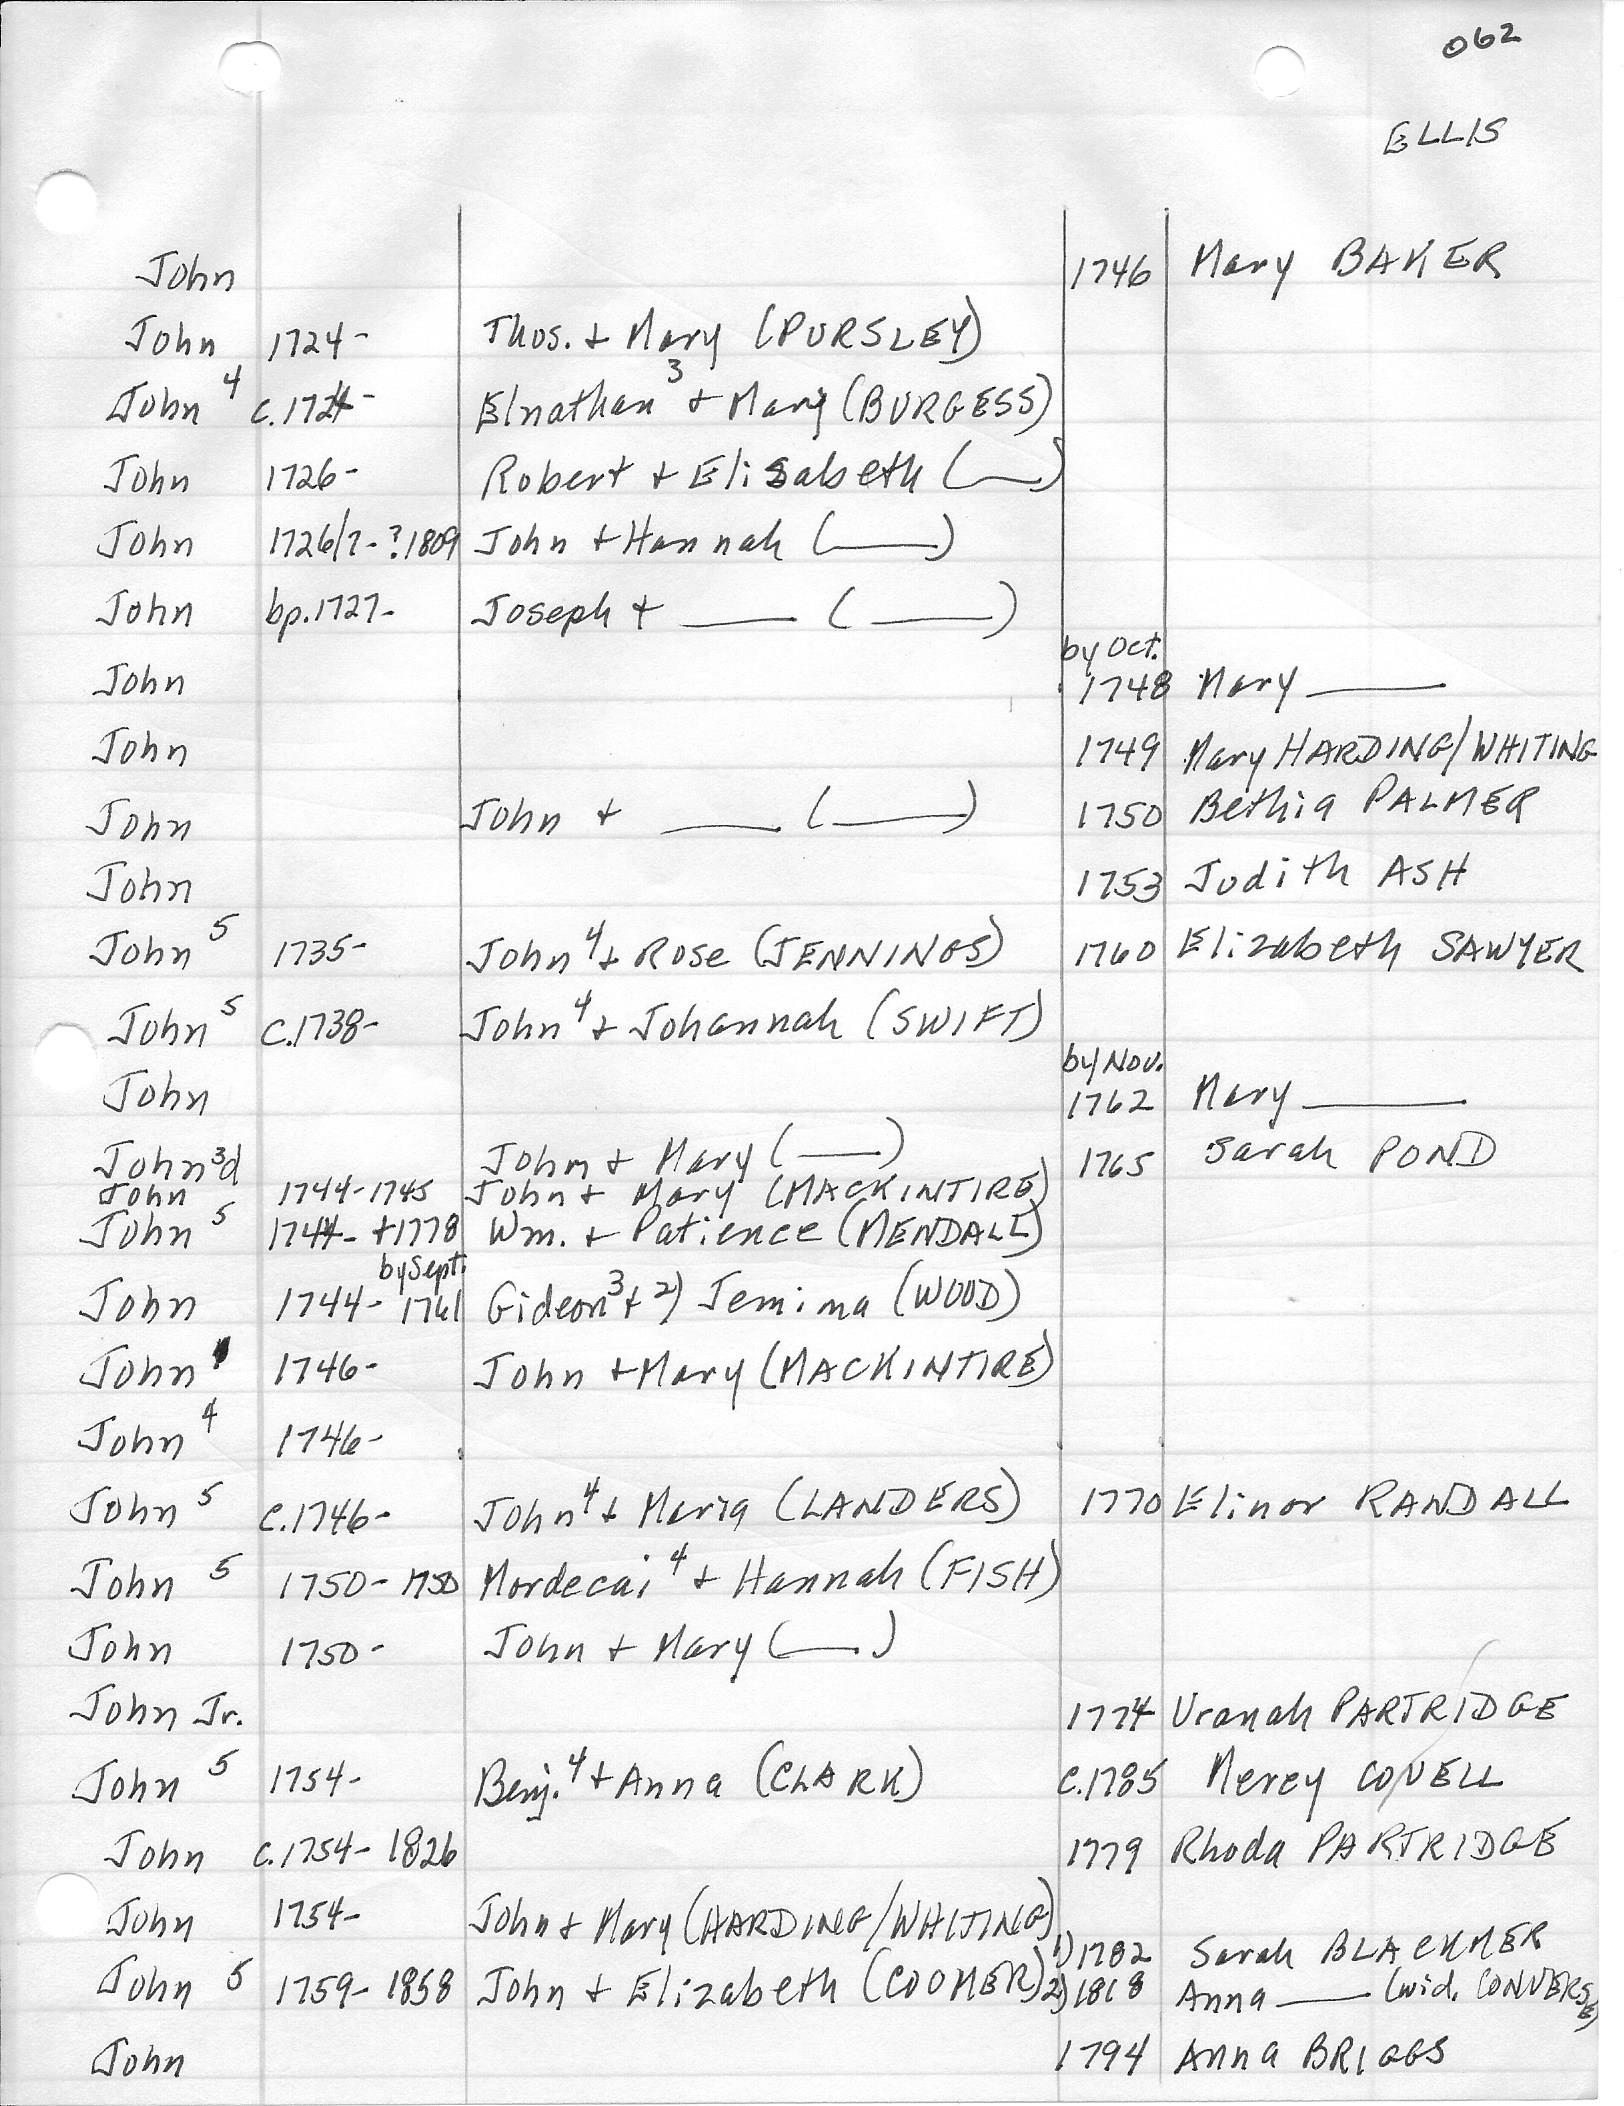 062
ELLIS
John 1746 Mary BAKER
John 1724- Thos. + Mary (PURSLEY)
John 4 c.1724- Elnathan 3 + Mary (BURGESS)
John 1726- Robert + Elisabeth (___)
John 1726/7-?1809 John + Hannah (___)
John bp.1727- Joseph + ___ (___)
by Oct.
John 1748 Mary ___
John 1749 Mary HARDING/WHITING
John John + ___ (___) 1750 Bethia PALMER
John 1753 Judith ASH
John 5 1735- John 4 + Rose (JENNINGS) 1760 Elizabeth SAWYER
John 5 c.1738- John 4 + Johannah (SWIFT)
by Nov.
John 1762 Mary ___
John 3d John + Mary (___) 1765 Sarah POND
John 1744-1745 John + Mary (MACKINTIRE)
John 5 1744- +1778 Wm. + Patience (MENDALL)
by Sept.
John 1744- 1761 Gideon 3 + 2) Jemima (WOOD)
John 1746- John + Mary (MACKINTIRE)
John 4 1746-
John 5 c.1746- John 4 + Maria (LANDERS) 1770 Elinor RANDALL
John 5 1750-1750 Mordecai 4 + Hannah (FISH)
John 1750- John + Mary (___)
John Jr. 1774 Uranah PARTRIDGE
John 5 1754- Benj. 4 + Anna (CLARK) c.1785 Mercy COVELL
John c.1754-1826 1779 Rhoda PARTRIDGE
John 1754- John + Mary (HARDING/WHITING)
1) 1782 Sarah BLACKMER
John 5 1759-1858 John + Elizabeth (COOMER) 2) 1818 Anna ___ (wid. CONVERSE)
John 1794 Anna BRIGGS